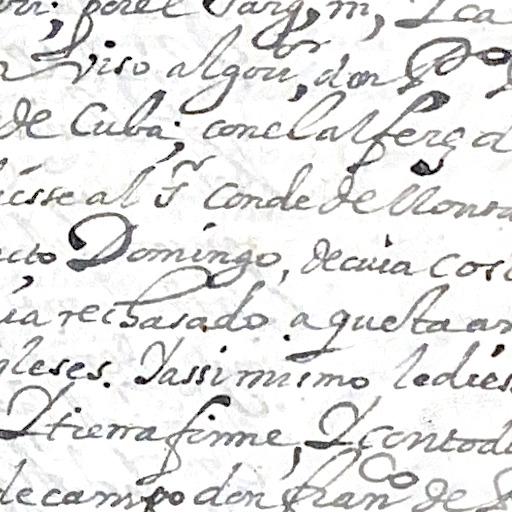 por el Sarg. m, Y ca
Aviso al gou.or, don P.o
de Cuba; con el alferez d
iesse al S.r Conde de Mons
cto Domingo, de cuia cos
uia rechasado aquella ar
gleses. Yassimismo, ledies
Y tierra firme, Y con todo
de campo don fran.co de